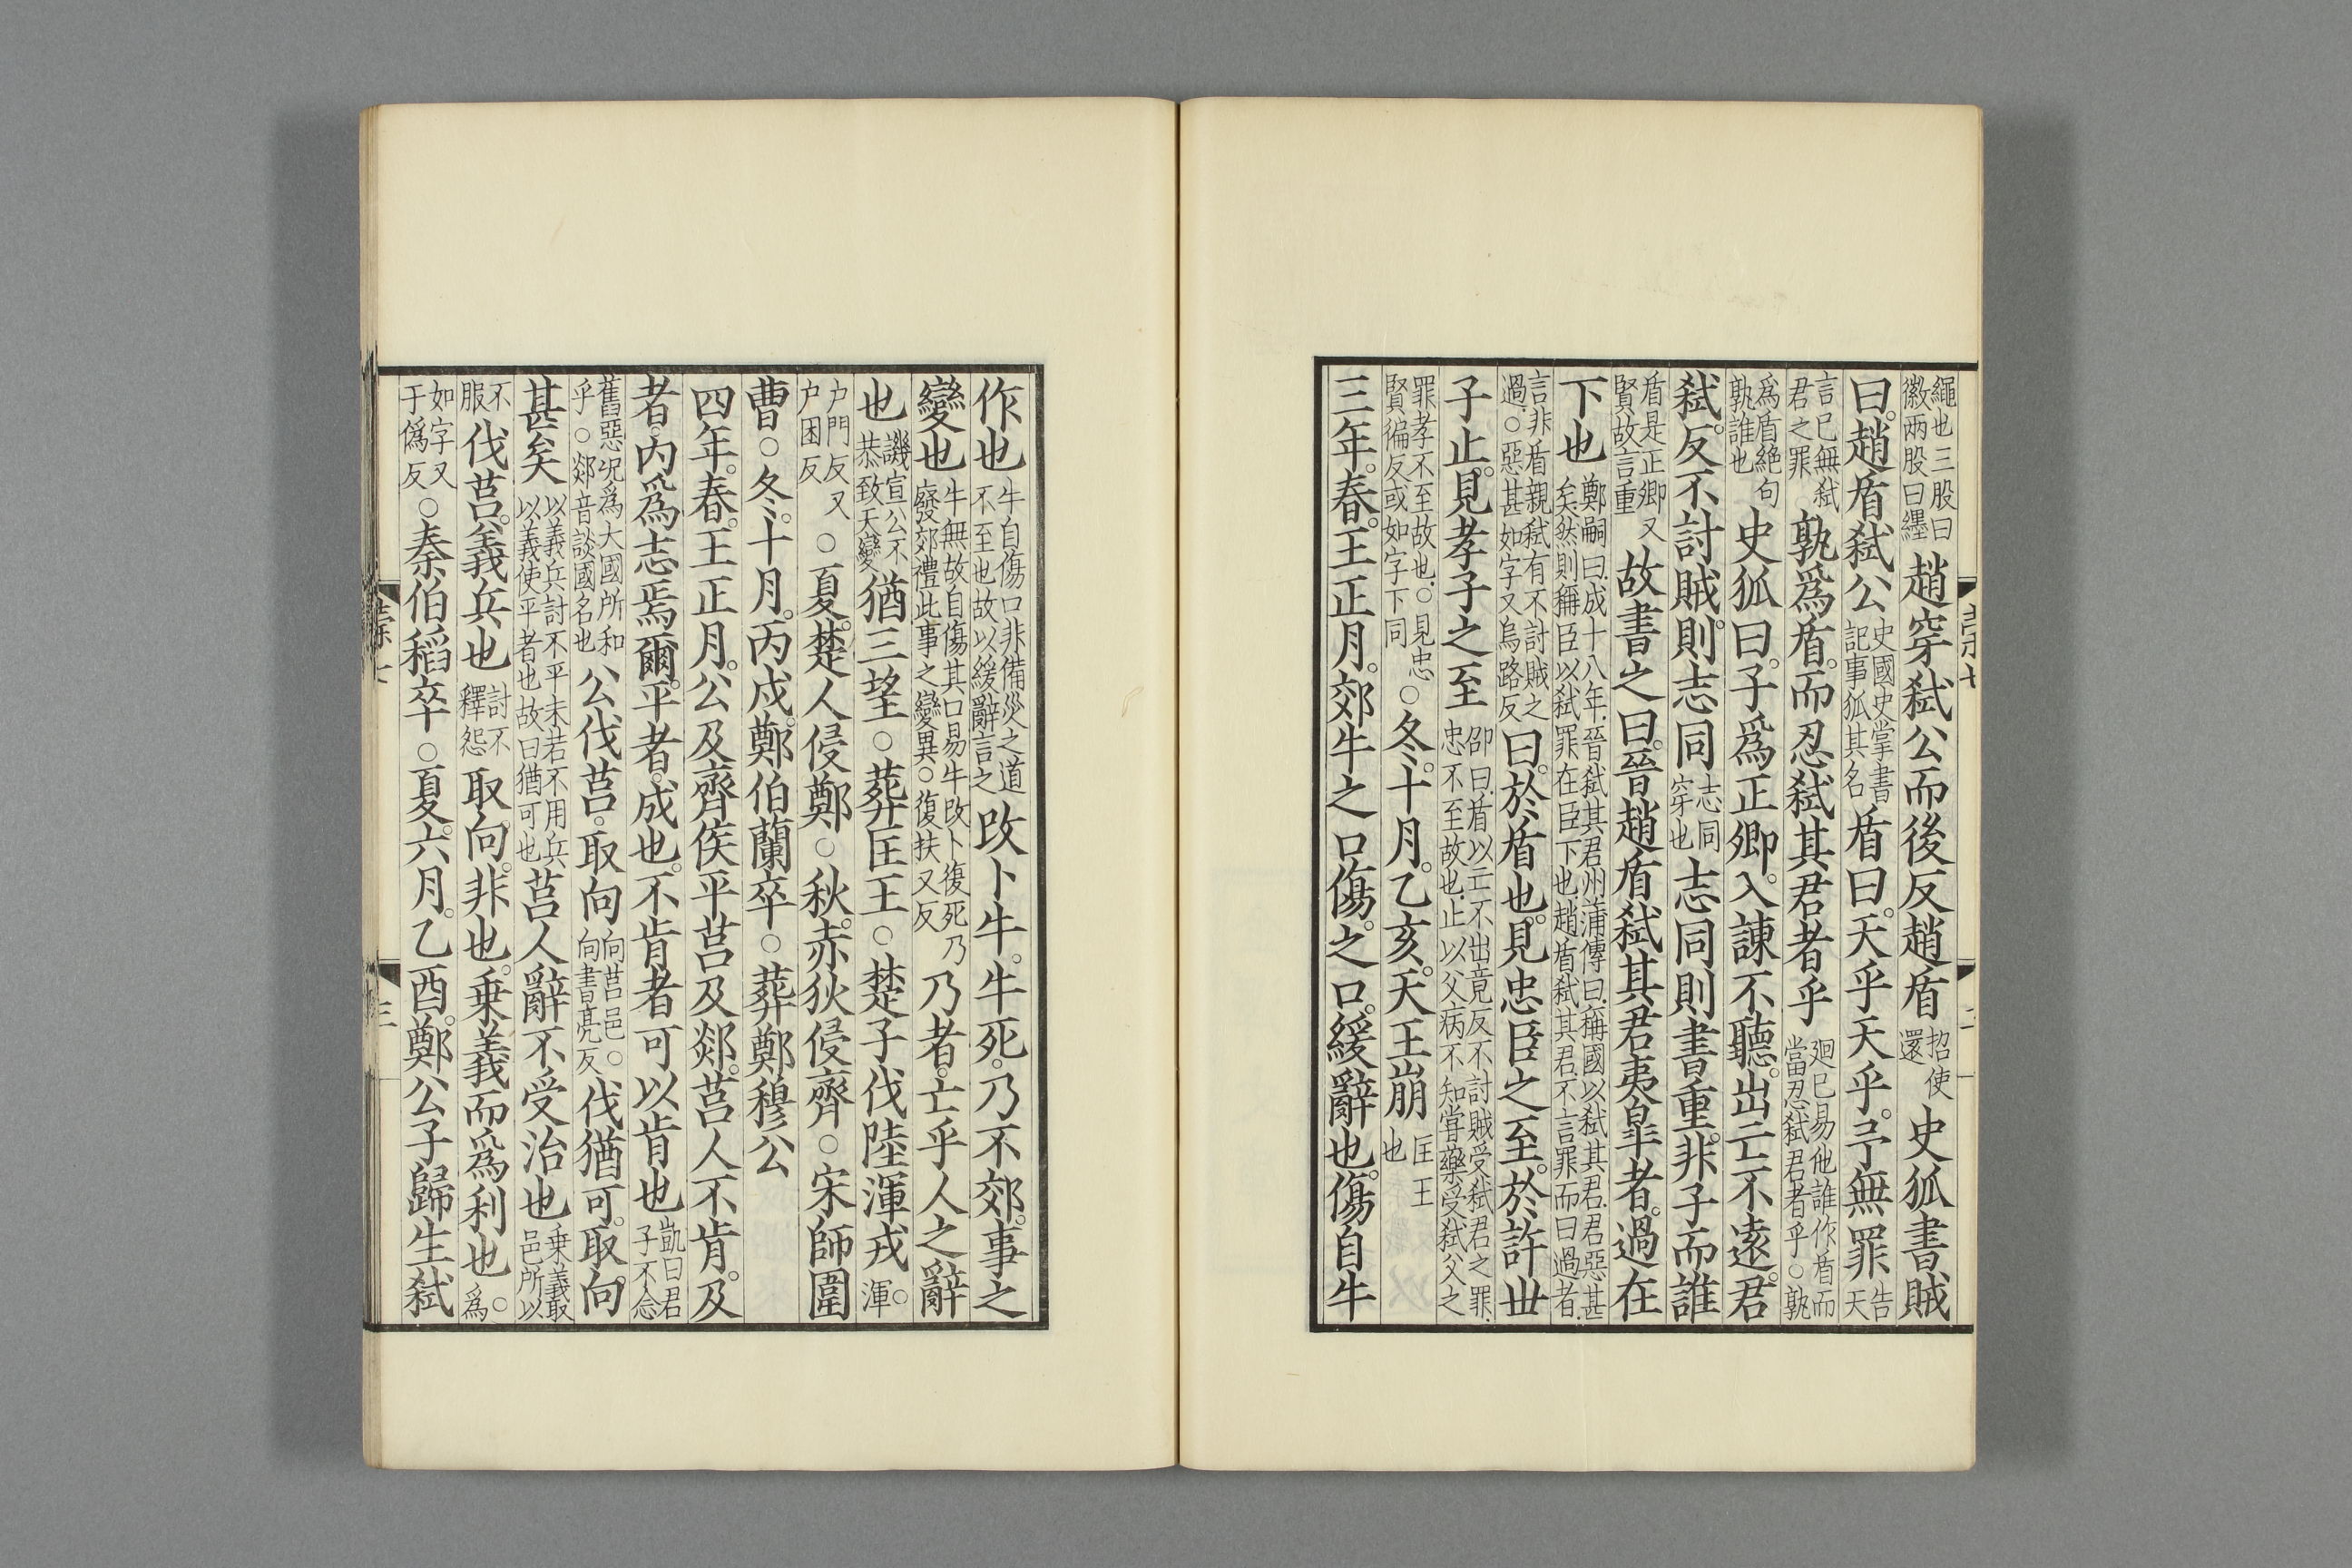 繩也三股曰徽兩股曰纆趙穿弑公而後反趙盾招使還史狐書賊
曰。趙盾弑公史國史掌書記事狐其名盾曰。天乎天乎。予無罪告天
言已無弑君之罪孰爲盾。而忍弑其君者乎迴已易他誰作盾而當忍弑君者乎○孰
爲盾絶句孰誰也史狐曰。子爲正卿。入諫不聽。出亡不遠。君
弑。反不討賊。則志同志同穿也志同則書重。非子而誰
盾是正卿又賢故言重故書之曰。晉趙盾弑其君夷皐者。過在
下也鄭嗣曰成十八年晉弑其君州蒲傳曰稱國以弑其君君惡甚矣然則稱臣以弑罪在臣下也趙盾弑其君不言罪而曰過者
言非盾親弑有不討賊之過○惡甚如字又烏路反曰。於盾也。見忠臣之至。於許世
子止。見孝子之至邵曰盾以亡不出竟反不討賊受弑君之罪忠不至故也止以父病不知嘗藥受弑父之
罪孝不至故也○見忠賢徧反或如字下同○冬。十月。乙亥。天王崩匡王也
三年。春。王正月。郊牛之口傷。之口。緩辭也。傷自牛
作也牛自傷口非備災之道不至也故以緩辭言之改卜牛。牛死。乃不郊。事之
變也牛無故自傷其口易牛改卜復死乃廢郊禮此事之變異○復扶又反乃者。亡乎人之辭
也譏宣公不恭致天變猶三望○葬匡王○楚子伐陸渾戎○渾
户門反又户困反○夏。楚人侵鄭○秋。赤狄侵齊○宋師圍
曹○冬。十月。丙戌。鄭伯蘭卒○葬鄭穆公
四年。春。王正月。公及齊侯平莒及郯。莒人不肯。及
者。内爲志焉爾。平者。成也。不肯者可以肯也凱曰君子不念
舊惡况爲大國所和乎○郯音談國名也公伐莒。取向向莒邑○向書亮反伐猶可。取向
甚矣以義兵討不平未若不用兵以義使平者也故曰猶可也莒人辭不受治也乗義取邑所以
不服伐莒。義兵也討不釋怨取向。非也。乗義而爲利也○爲
如字又于僞反○秦伯稻卒○夏。六月。乙酉。鄭公子歸生弑